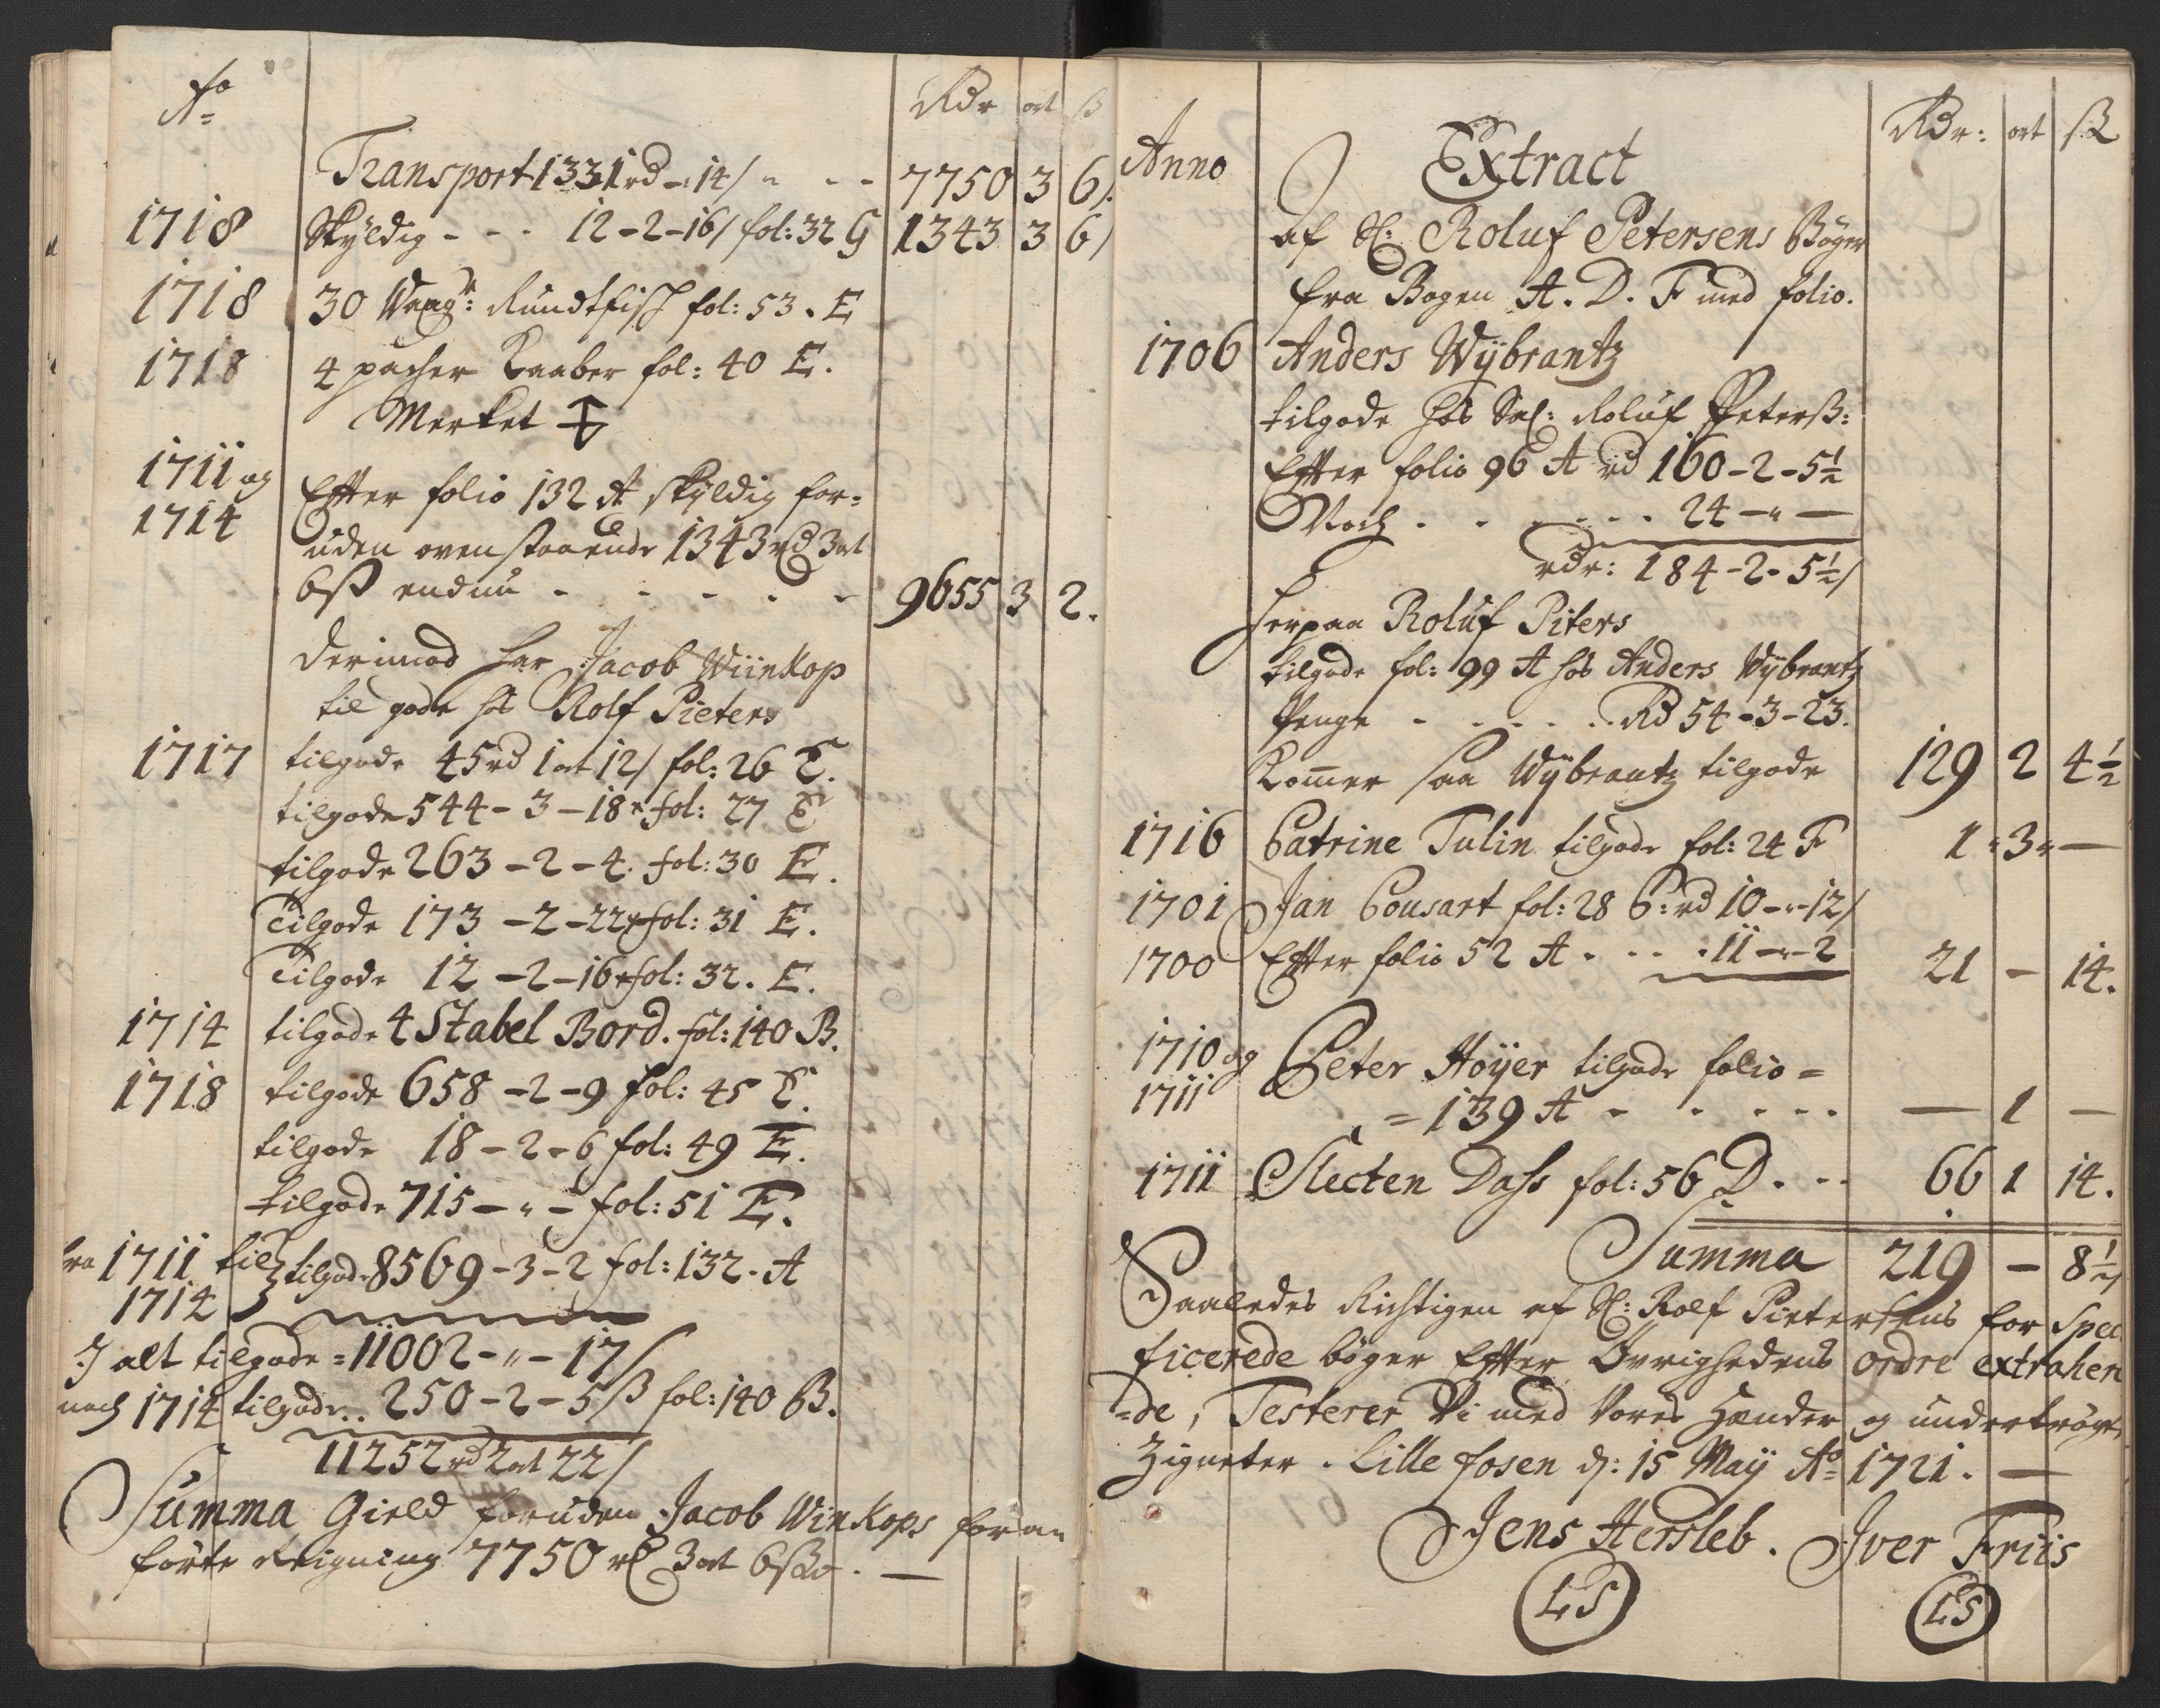 Ao
Rdr ort ß
Transport 1331 rd - 14/ " - - 7750 3 6/.
1718 Skyldig - - - 12 - 2 - 16/ fol: 32 G 1343 3 6/
1718 30 Waagr: Rundtfisch fol: 53. E
1718 4 packer Kaaber fol: 40 E.
Merket
1711 og
1714 Effter folio 132 A skyldig for=
uden ovenstaaende 1343 rd 3 ort
6ß endnu - - - - - 9655 3 2.
Derimod har Jacob Wiinkop
til gode hos Rolf Pieters
1717 tilgode 45 rd 1 ort 12/ fol: 26 E.
tilgode 544 - 3 - 18 fol: 27 E
tilgode 263 - 2 - 4. fol: 30 E.
Tilgode 173 - 2 - 22 fol: 31 E.
Tilgode 12 - 2 - 16 fol: 32. E.
1714 tilgode 4 Stabel Bord. fol: 140 B.
1718 tilgode 658 - 2 - 9 fol: 45 E.
tilgode 18 - 2 - 6 fol: 49 E.
tilgode 715 - " - fol: 51 E.
fra 1711 til
1714 tilgode 8569 - 3 - 2 fol: 132. A
J alt tilgode = 11002 - " - 17/
noch 1714 tilgode .. 250 - 2 - 5/ß fol: 140 B.
11252 rd 2 ort 22/
Summa Gield foruden Jacob Winkops foran
förte Reigning 7750 rd 3 ort 6ß. —
Anno
Rdr: ort ß
Extract
af Sl: Roluf Petersens Bøger
fra Bogen A. D. F med folio.
1706 Anders Wÿbrantz
tilgode hos Sal: Roluf Peterß:
Effter folio 96 A rd 160 - 2 - 5½
Noch . . . . . . 24 - " -
rdr: 184 - 2 - 5½/
Herpaa Roluf Piters
tilgode fol: 99 A hos Anders Wÿbrantz
Penge - . . . . Rd 54 - 3 - 23.
Kommer saa Wÿbrantz tilgode 129 2 4½
1716 Catrine Tulin tilgode fol: 24 F 1 " 3 " —
1701 Jan Cousart fol: 28 C: rd 10 - " - 12/
1700 Effter folio 52 A . . . . 11 - " - 2 21 - 14.
1710 og
1711 Peter Höÿer tilgode folio =
= 139 A - . . . . — 1 —
1711 Slecten Dass fol: 56 D . . . 66 1 14.
Summa 219 - 8½
Saaledes Richtigen af Sl: Rolf Pietersens for Speci
ficerede bøger Effter Øvrighedens ordre extraheren
=de, Testerer Vi med Vores Hænder og undertrøgte
Zigneter. Lille fosen d: 15 Maÿ Ao 1721. —
Jens Hersleb. Jver Friis
LS LS